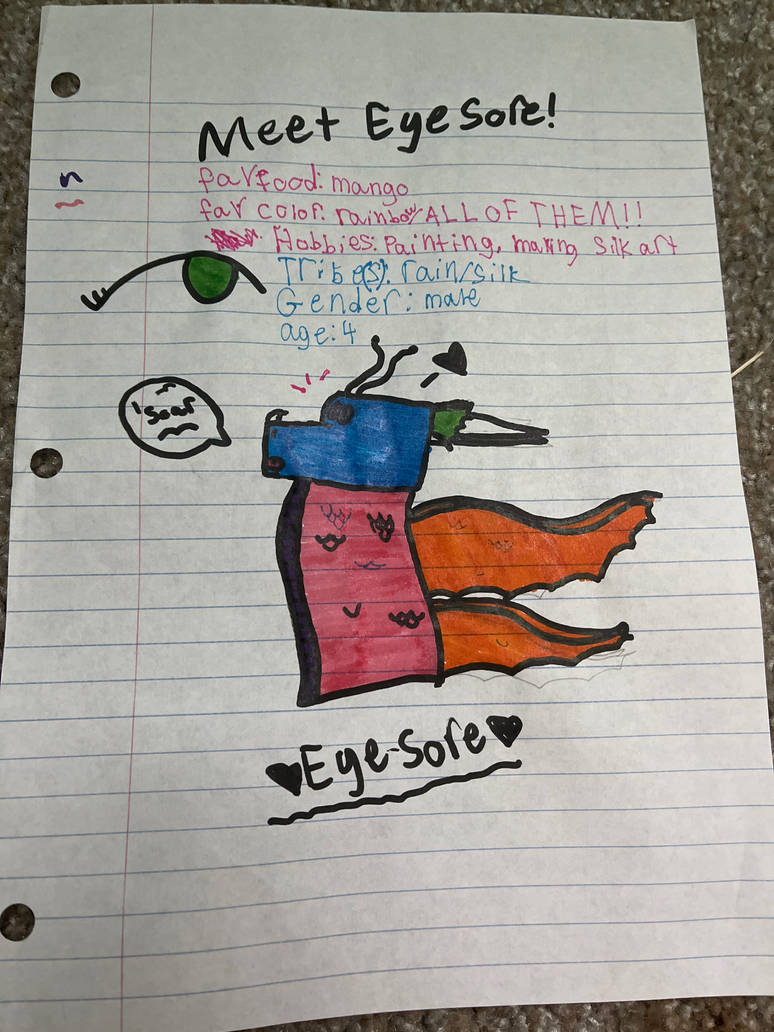 Meet Eyesore!
fav food: mango
fav color: rainbow ALL OF THEM!!
Hobbies: Painting, making silk art
Tribe(s): rain/silk
Gender: male
age: 4
soar
Eye-Sore